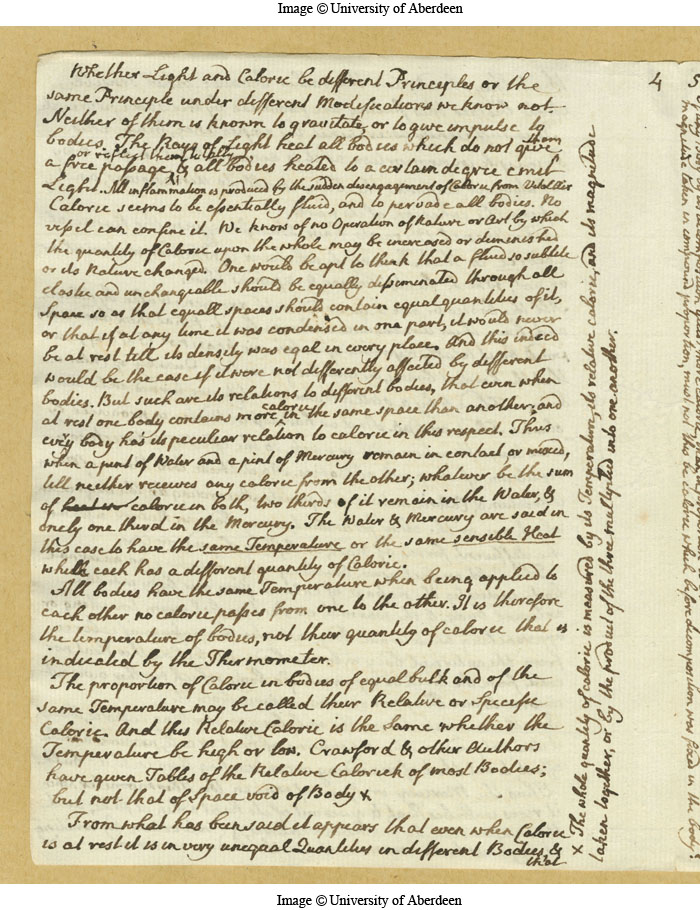 Image © University of Aberdeen
4
Whether Light and Caloric be different Principles or the
same Principle under different Modifications we know not.
Neither of them is known to gravitate, or to give impulse to
bodies. The Rays of Light heat all bodies which do not give them
or reflect them totally
a free passage, & all bodies heated to a certain degree emit
Light. All inflammation is produced by the sudden disengagement of Caloric from Vital Air
Caloric seems to be essentially fluid, and to pervade all bodies. No
vessel can confine it. We know of no Operation of Nature or Art by which
the quantity of Caloric upon the whole may be increased or diminished
or its Nature changed. One would be apt to think that a fluid so subtile
elastic and unchangeable should be equally disseminated through all
Space so as that equall spaces should contain equal quantities of it,
or that if at any time it was condensed in one part, it would never
be at rest till its density was eqal in every place. And this indeed
would be the case if it were not differently affected by different
bodies. But such are its relations to different bodies, that even when
at rest one body contains more caloric in the same space than another; and
every body has its peculiar relation to caloric in this respect. Thus
when a pint of Water and a pint of Mercury remain in contact or mixed,
till neither receives any caloric from the other; whatever be the sum
of caloric in both, two thirds of it remain in the Water, &
onely one third in the Mercury. The Water & Mercury are said in
this case to have the same Temperature or the same sensible Heat
while each has a different quantity of Caloric.
All bodies have the same Temperature when being applied to
each other no caloric passes from one to the other. It is therefore
the temperature of bodies, not their quantity of caloric that is
indicated by the Thermometer.
The proportion of Caloric in bodies of equal bulk and of the
same Temperature may be called their Relative or Specific
Caloric. And this Relative Caloric is the Same whether the
Temperature be high or low. Crawford & other Authors
have given Tables of the Relative Calorick of most Bodies;
but not that of Space void of Body x
From what has been said it appears that even when Caloric
is at rest it is in very unequal Quantities in different Bodies, &
that
x The whole quantity of caloric is measured by its Temperature, its relative caloric, and its magnitude
taken together, or by the product of the three multiplied into one another.
5
Image © University of Aberdeen